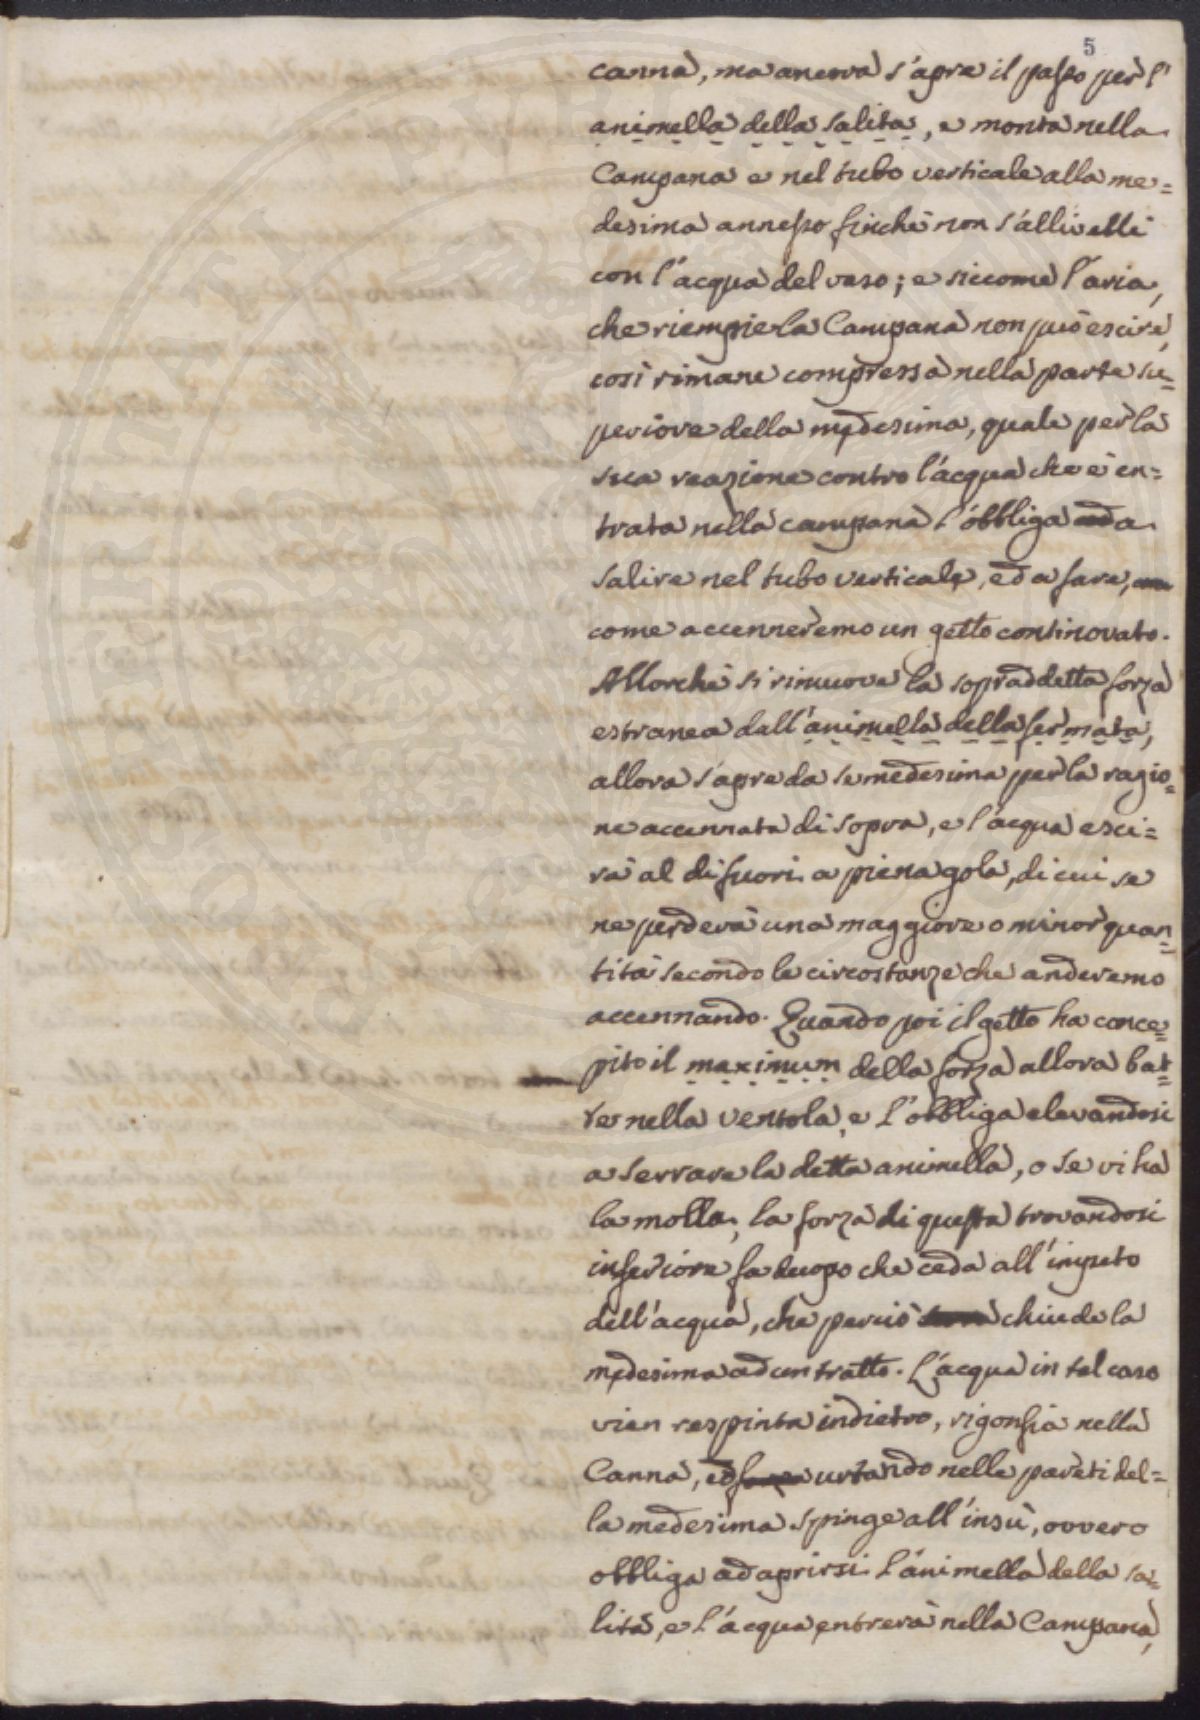 5
canna, ma ancora s'apre il passo per l'
animella della salita, e monta nella
Campana e nel tubo verticale alla me=
desima annesso finchè non s'allivelli
con l'acqua del vaso; e siccome l'aria,
che riempie la Campana non può escire,
così rimane compressa nella parte su=
periore della medesima, quale per la
sua reazione contro l'acqua che è en=
trata nella campana l'obbliga a
salire nel tubo verticale, ed a fare,
come accenneremo un getto continovato.
Allorchè si rimuove la sopraddetta forza
estranea dall'animella della fermata,
allora s'apre da se medesima per la ragio=
ne accennata di sopra, e l'acqua esci=
rà al di fuori a piena gola, di cui se
ne perderà una maggiore o minor quan=
tità secondo le circostanze che anderemo
accennando. Quando poi il getto ha conce=
pito il maximum della forza allora bat=
te nella ventola, e l'obbliga elevandosi
a serrare la detta animella, o se vi ha
la molla, la forza di questa trovandosi
inferiore fa duopo che ceda all'impeto
dell'acqua, che perciò chiude la
medesima ad un tratto. L'acqua in tal caso
vien respinta indietro, rigonfia nella
Canna, ed urtando nelle pareti del=
la medesima spinge all'insù, ovvero
obbliga ad aprirsi l'animella della sa=
lita, e l'acqua entrerà nella Campana,